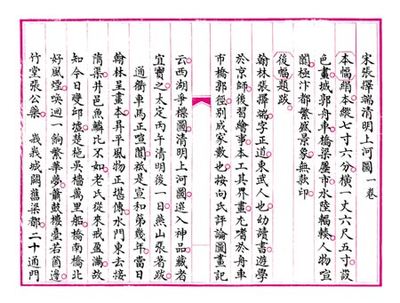 宋張擇端清明上河圖一卷
本幅絹本縱七寸六分橫一丈六尺五寸設
色畫城郭舟車橋梁廛市水陸輻輳人物喧
闐極汴都繁盛景象無款印
後幅題跋
翰林張擇端字正道東武人也幼讀書遊學
於京師後習繪事本工其界畫尤嗜於舟車
市橋郭徑別成家數也按向氏評論圖畫記
云西湖爭標圖清明上河圖選入神品藏者
宜寶之大定丙午清明後一日燕山張著跋
通衢車馬正喧闐祗是宣和第幾年當日
翰林呈畫本昇平風物正堪傳水門東去接
隋渠井邑魚鱗比不如老氏從來戒盈滿故
知今日變邱墟楚柂吳檣萬里船橋南橋北
好風煙喚迴一餉繁華夢簫鼓樓臺若箇邊
竹堂張公藥 峩峩城闕舊梁都二十通門